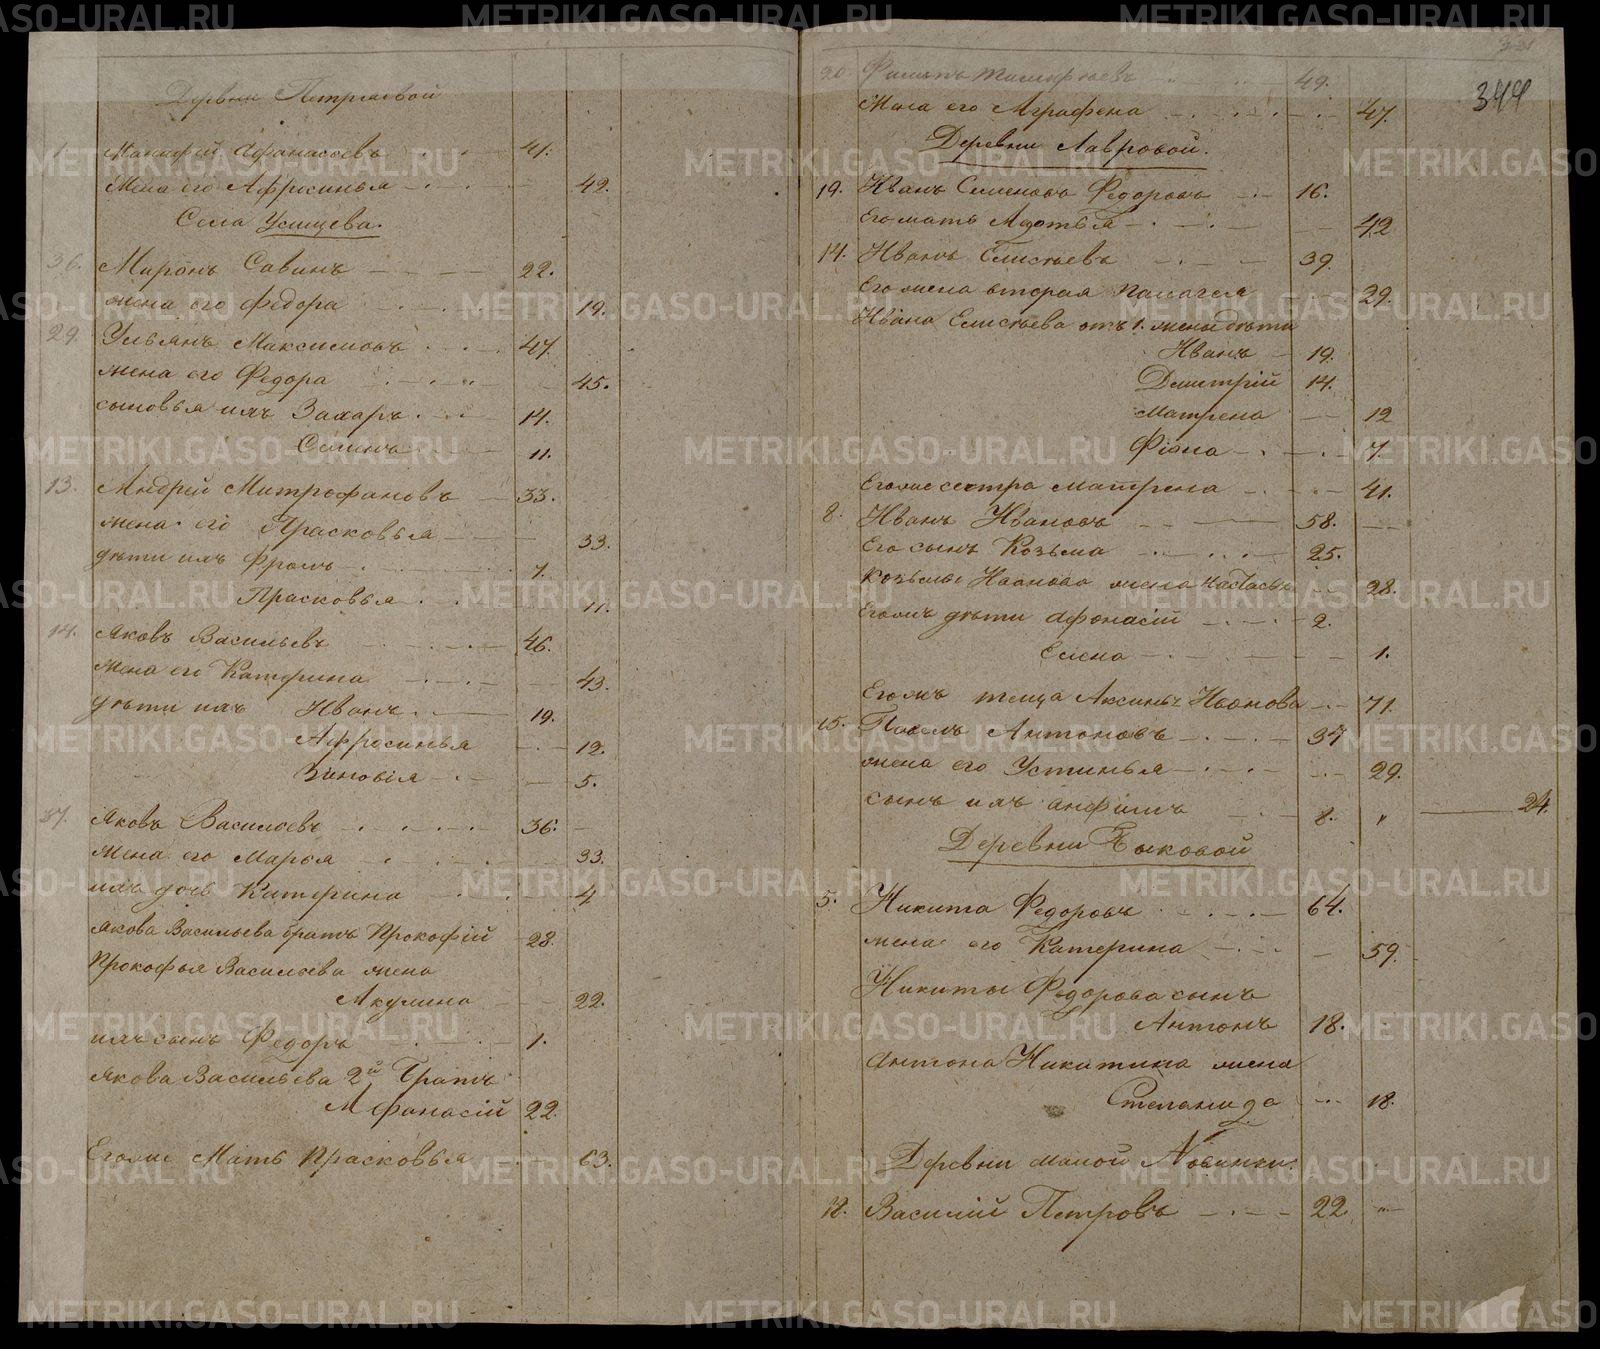 Деревни Петряевой
1 Манафей Афанасьевъ 41.
Жена его Афросинья 42.
Села Усищева.
36. Миронъ Савинъ 22.
жена его Федора 19.
29. Ульянъ Максимовъ 47.
жена его Федора 45.
сыновья ихъ Захаръ 14.
Семенъ 11.
13. Андрей Митрофановъ 33.
жена его Прасковья 33.
дѣти ихъ Фролъ 7.
Прасковья 11.
14. Яковъ Васильевъ 46.
Жена его Катерина 43.
дѣти ихъ Иванъ 19.
Афросинья 12.
Зиновія 5.
37. Яковъ Васильевъ 36.
Жена его Марья 33.
ихъ дочь Катерина 4
Якова Васильева братъ Прокофій 28.
Прокофья Васильева жена
Акулина 22.
ихъ сынъ Федоръ 1.
Якова Васильева 2й братъ
Афанасій 22.
Егоже Мать Прасковья 63.
344
20. Филипъ Тимофѣевъ 49.
Жена его Аграфена 47.
Деревни Лавровой.
19. Иванъ Семеновъ Федоровъ 16.
Его мать Авдотья 42
14. Иванъ Елисѣевъ 39.
Его жена вторая Палагея 29.
Ивана Елисѣева отъ 1. жены дѣти
Иванъ 19.
Дмитрій 14.
Матрена 12
Фіона 7.
Егоже сестра Матрена 41.
8. Иванъ Ивановъ 58.
Его сынъ Козьма 25.
Козьмы Иванова жена Настасья 28.
Егожъ дѣти Афонасій 2.
Елена 1.
Егожъ теща Аксинья Иванова 71.
15. Павелъ Антоновъ 37
жена его Устинья 29.
сынъ ихъ Анфимъ 8. 24.
Деревни Быковой
5. Никита Федоровъ 64.
жена его Катерина 59.
Никиты Федорова сынъ
Антонъ 18.
Антона Никитина жена
Степанида 18.
Деревни малой Лавинки.
12. Василій Петровъ 22
METRIKI.GASO-URAL.RU